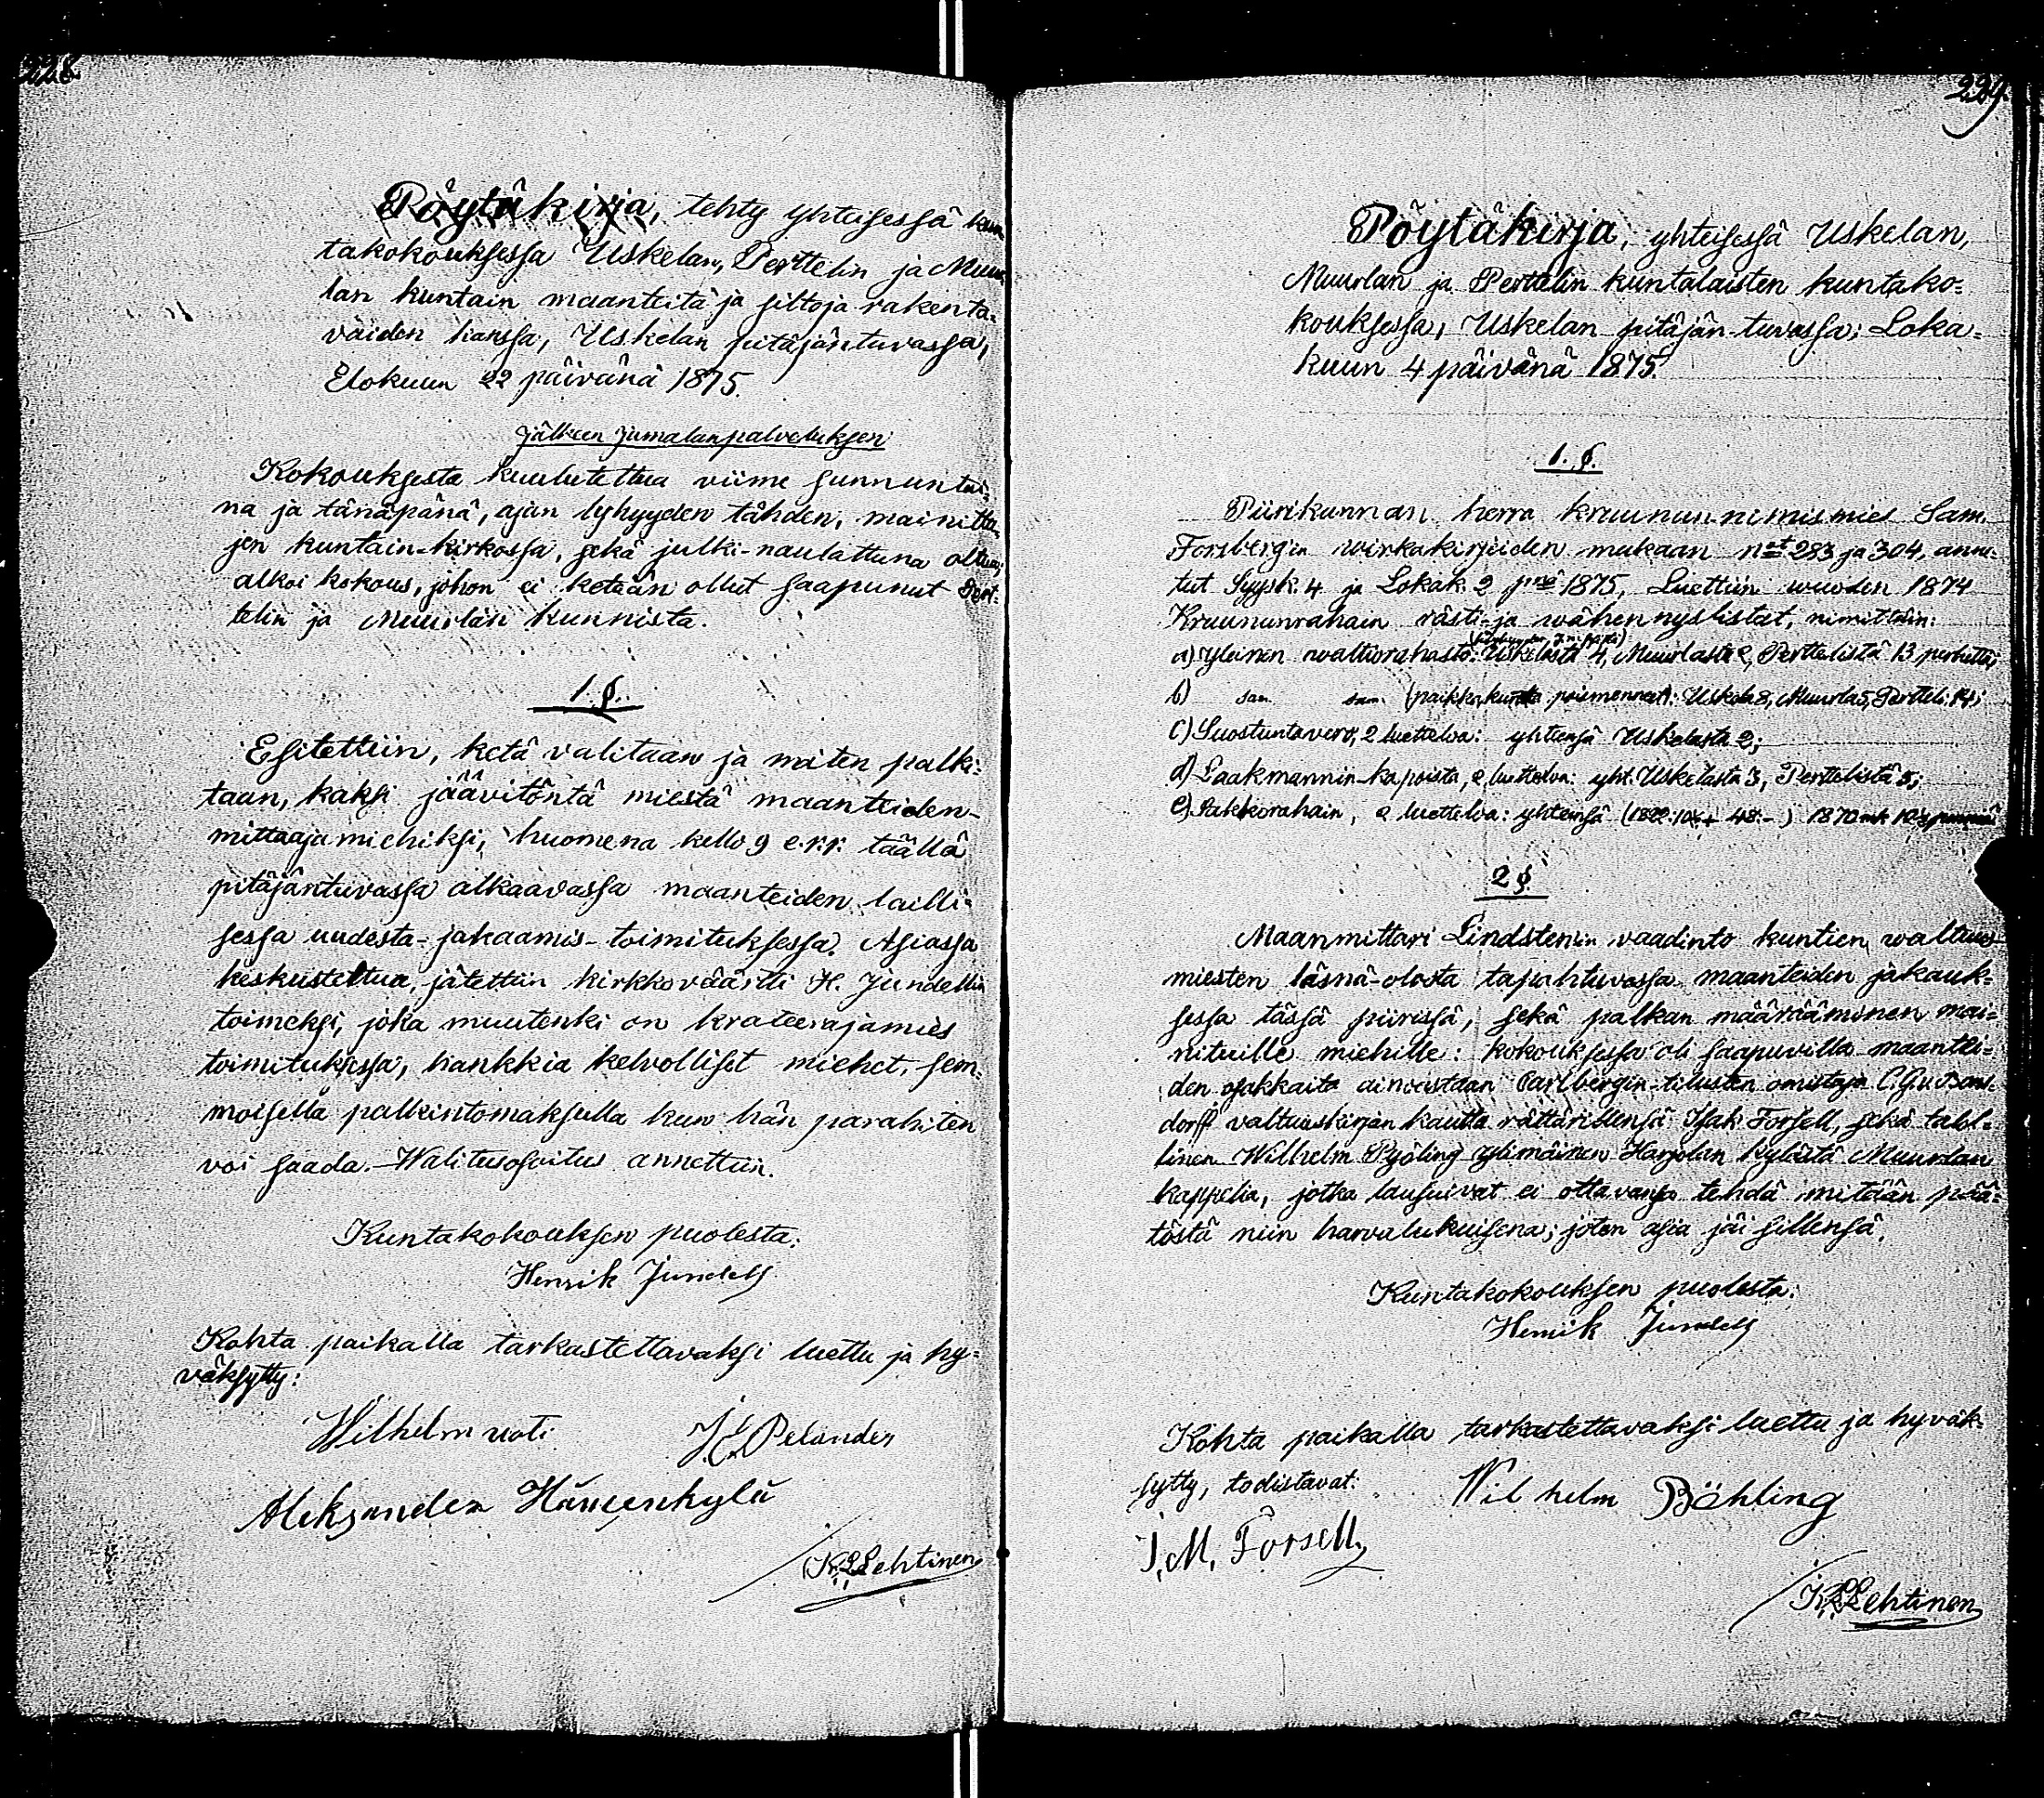 228.
Pöytäkirja, tehty yhteisessä kun
takokouksessa Uskelan, Perttelin ja Muur
lan kuntain maanteitä ja siltoja rakenta-
vaiden kanssa, Uskelan pitäjäntuvassa,
Elokuun 22 päivänä 1875.
Jälkeen jumalanpalveluksen
Kokouksesta kuulutettua viime sunnuntai-
na ja tänäpänä, ajan lyhyyden tähden, mainittu-
jen kuntain kirkossa, sekä julki-naulattuna oltua,
alkoi kokous, johon ei ketään ollut saapunut Pert-
telin ja Muurlan kunnista.
1. §.
Esitettiin, ketä valitaan ja miten palki-
taan, kaksi jäävitöntä miestä maanteiden-
mittaajamiehiksi, huomena kello 9 e.p.p. täällä
pitäjäntuvassa alkaavassa maanteiden lailli-
sessa uudesta-jakaamis-toimituksessa. Asiassa
keskusteltua, jätettiin kirkkoväärtti H. Jundellin
toimeksi, joka muutenki on krateerajamies
toimituksessa, hankkia kelvolliset miehet, sem-
moisella palkintomaksulla kun hän parahiten
voi saada. Walitusosoitus annettiin.
Kuntakokouksen puolesta:
Henrik Jundell
Kohta paikalla tarkastettavaksi luettu ja hy-
väksytty:
Wilhelm uoti J. E. Pelander
Aleksander Hämeenkylä
K. L. Lehtinen
229.
Pöytäkirja, yhteisessä Uskelan,
Muurlan ja Perttelin kuntalaisten kuntako-
kouksessa, Uskelan pitäjän tuvassa, Loka-
kuun 4 päivänä 1875.
1. §.
Piirikunnan herra kruunun-nimismies Sam.
Forsbergin wirkakirjeiden mukaan n:ot 283 ja 304, anne-
tut Syysk. 4 ja Lokak. 2 p:nä 1875, Luettiin wuoden 1874
Kruununrahain rästi- ja wähennyslistat, nimittäin:
a) Yleinen waltiorahasto: Uskelasta 4, Muurlasta 2, Perttelistä 13 perhettä;
b) sam. sam. (paikkakunta poismenneet): Uskela 8, Muurla 5, Pertteli 14;
c) Suostuntavero, 2 luetteloa: yhteensä Uskelasta 2;
d) Laakmannin-kapoista, 2 luetteloa: yht. Uskelasta 3, Perttelistä 5;
e) Sakkorahain, 2 luetteloa: yhteensä (1822:10¼ + 48:-) 1870 mk 10¼
2 §
Maanmittari Lindstenin vaadinto kuntien waltuus-
miesten läsnä-olosta tapahtuvassa maanteiden jakauk-
sessa tässä piirissä, sekä palkan määrääminen mai-
nituille miehille: kokouksessa oli saapuvilla maantei-
den osakkaita ainoastaan Carlbergin-tilusten omistaja C. G. v. Bons-
dorff valtuuskirjan kautta rättärillensä Isak Forsell, sekä talol-
linen Wilhelm Pyöling Ylimäinen Harjolan kylästä Muurlan
kappelia, jotka lausuivat ei ottavansa tehdä mitään pää-
töstä niin harvalukuisena; joten asia jäi sillensä.
Kuntakokouksen puolesta:
Henrik Jundell
Kohta paikalla tarkastettavaksi luettu ja hyväk-
sytty, todistavat: Wilhelm Böhling
J. M. Forsell,
K. L. Lehtinen